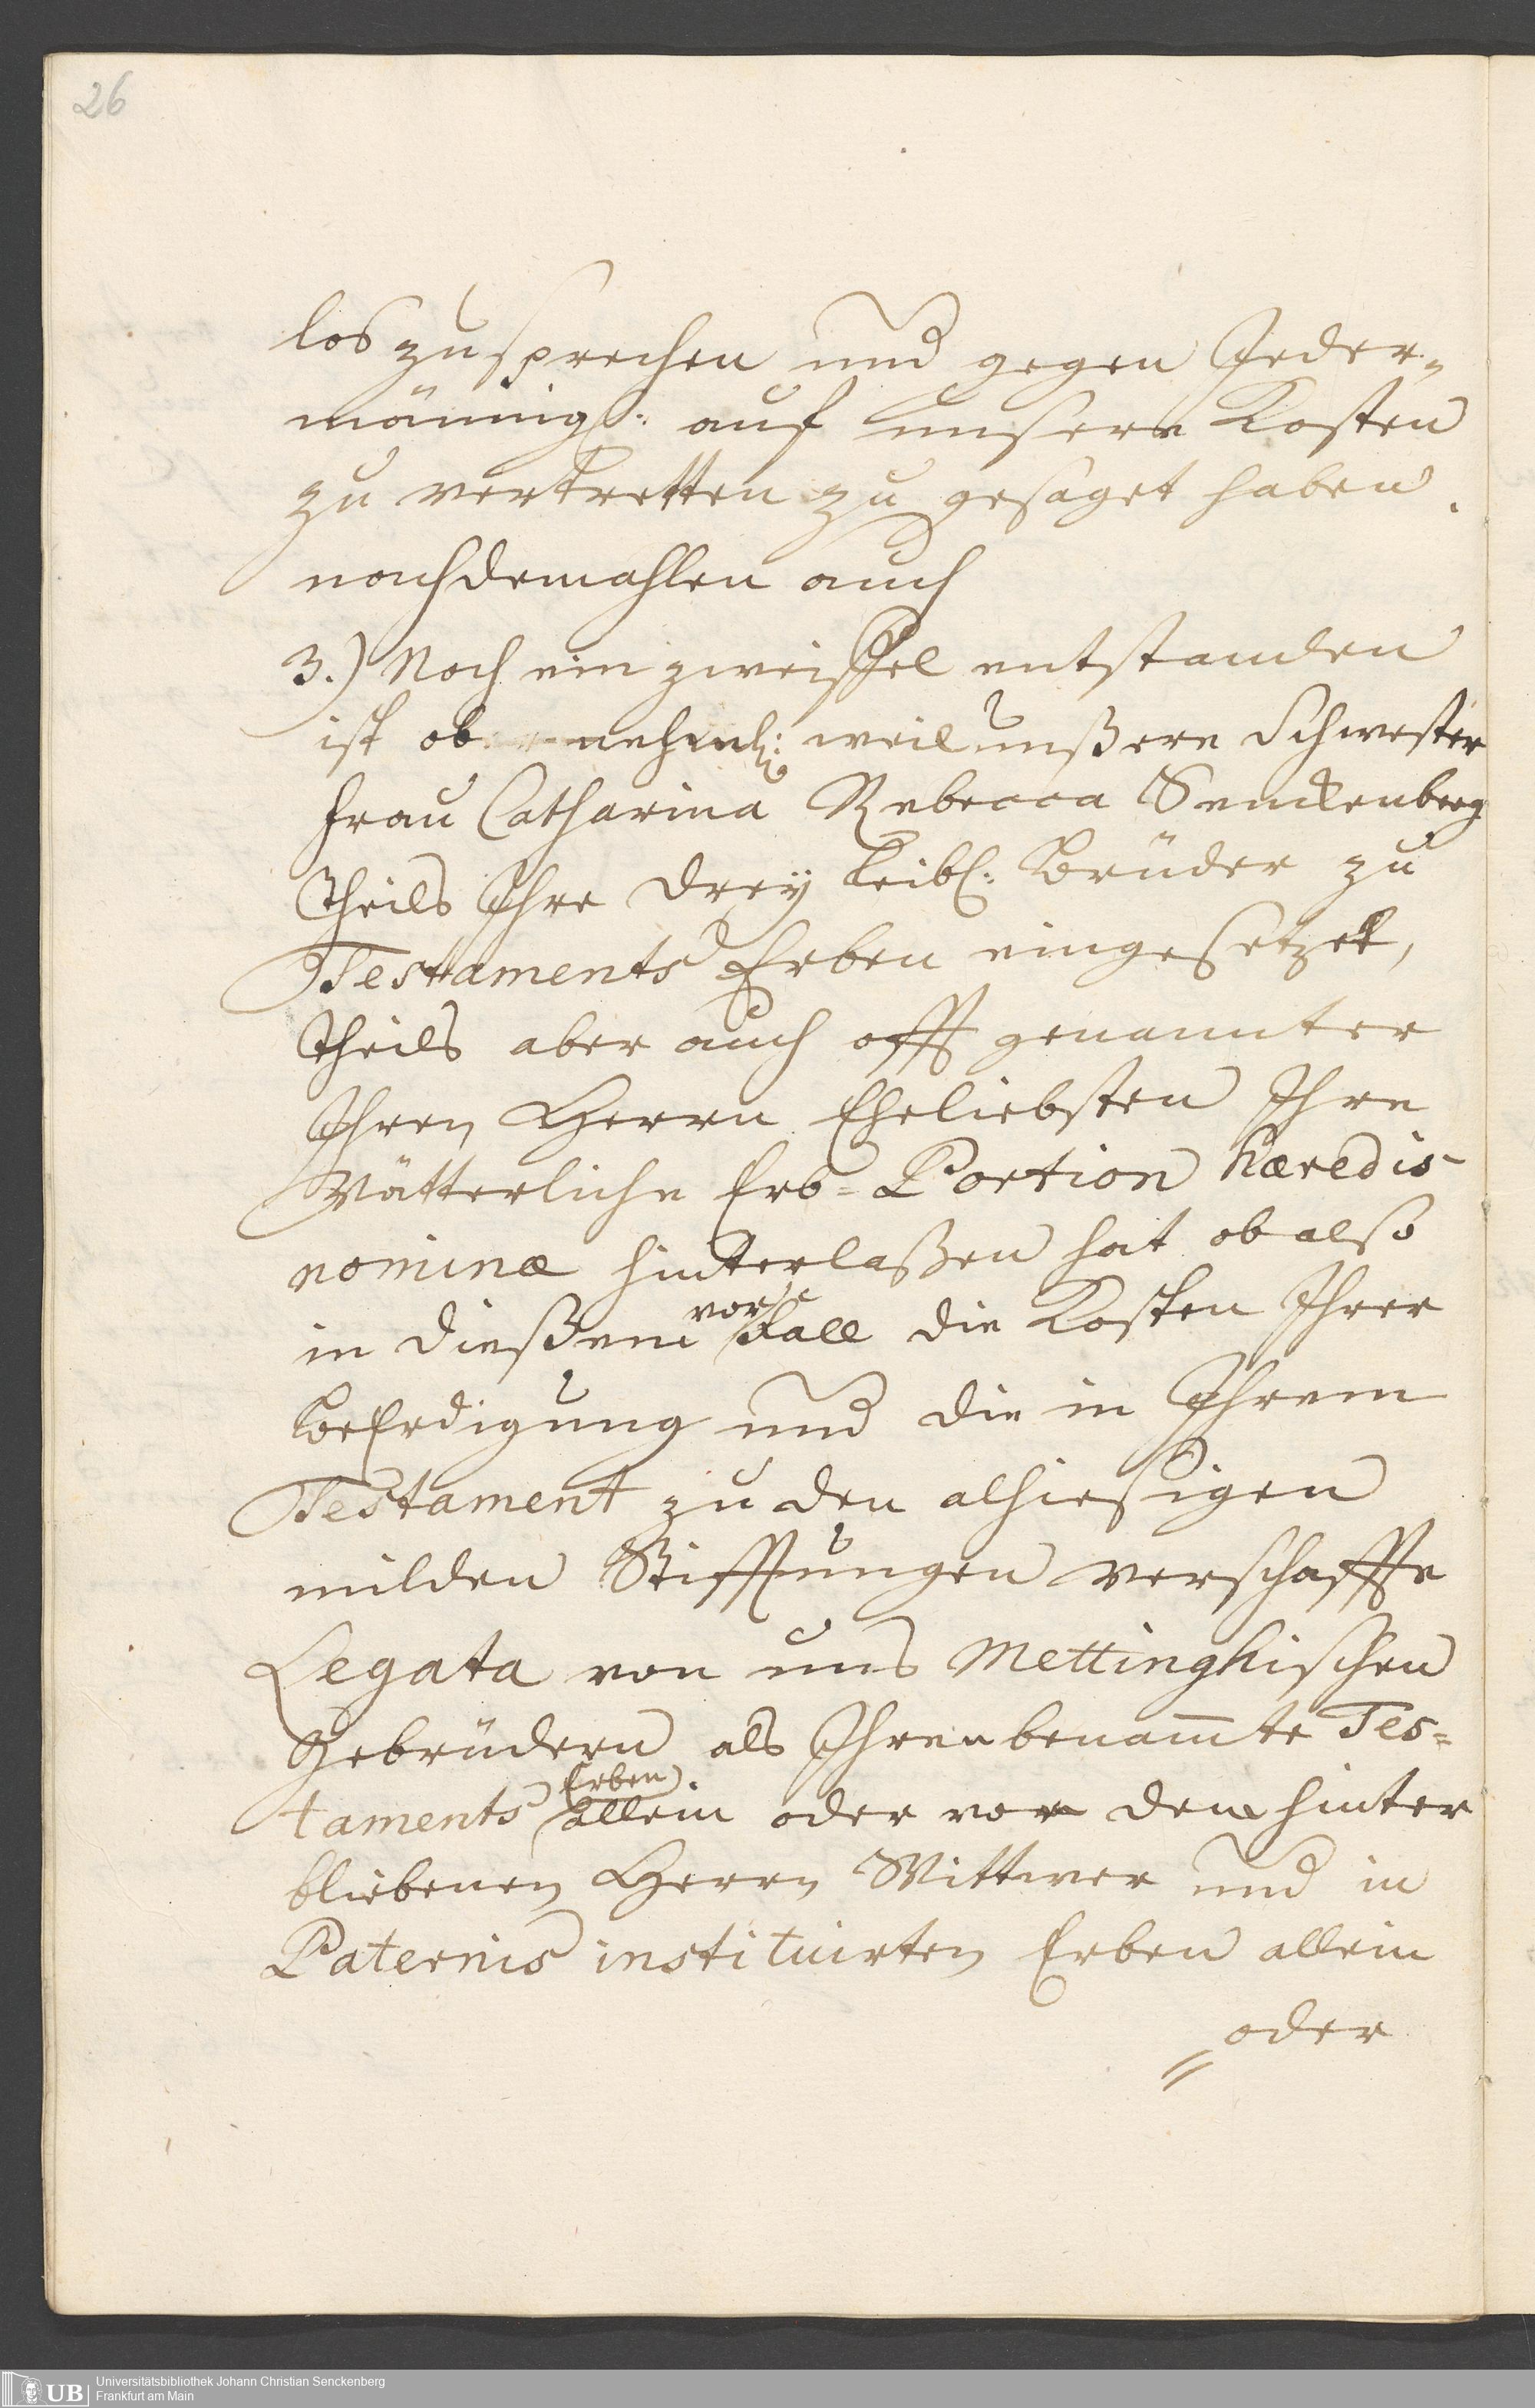 26
los zu sprechen und gegen Jeder-
männigl: auf unsere Kosten
zu vertretten zu gesaget haben.
nachdemahlen auch
3.) Noch ein zweiffel entstanden
ist ob nehml: weil unßere Schwester
Frau Catharina Rebecca Senckenberg
theils Ihre drey leibl: Brüder zu
Testaments Erben eingesetzet,
theils aber auch offt genannter
Ihren Herrn Eheliebsten Ihre
Vätterliche Erb-Portion hæredis
nominæ hinterlaßen hat ob also
in dießem vor Fall die Kosten Ihrer
Beerdigung und die in Ihrem
Testament zu den alhiesigen
milden Stifftungen verschaffte
Legata von uns Mettinghischen
Gebrüdern als Ihren benam̅te Tes=
taments Erben allein oder von dem hinter
bliebenen Herrn Wittwer und in
Paternis instituirten Erben allein
oder
UB Universitätsbibliothek Johann Christian Senckenberg
Frankfurt am Main